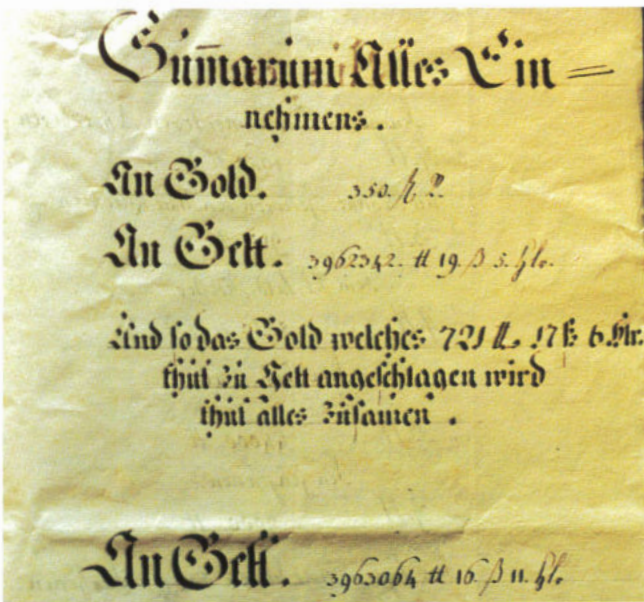 Sum̄arum Alles Ein=
nehmens.
An Gold. 350.
An Gelt. 3962342. ℔ 19. ß 5. hlr.
Und so das Gold welches 721 ℔. 17 ß 6 Hlr.
thut zu Gelt angeschlagen wird
thut alles zusamen.
An Gelt. 3963064 ℔ 16. ß 11. hlr.